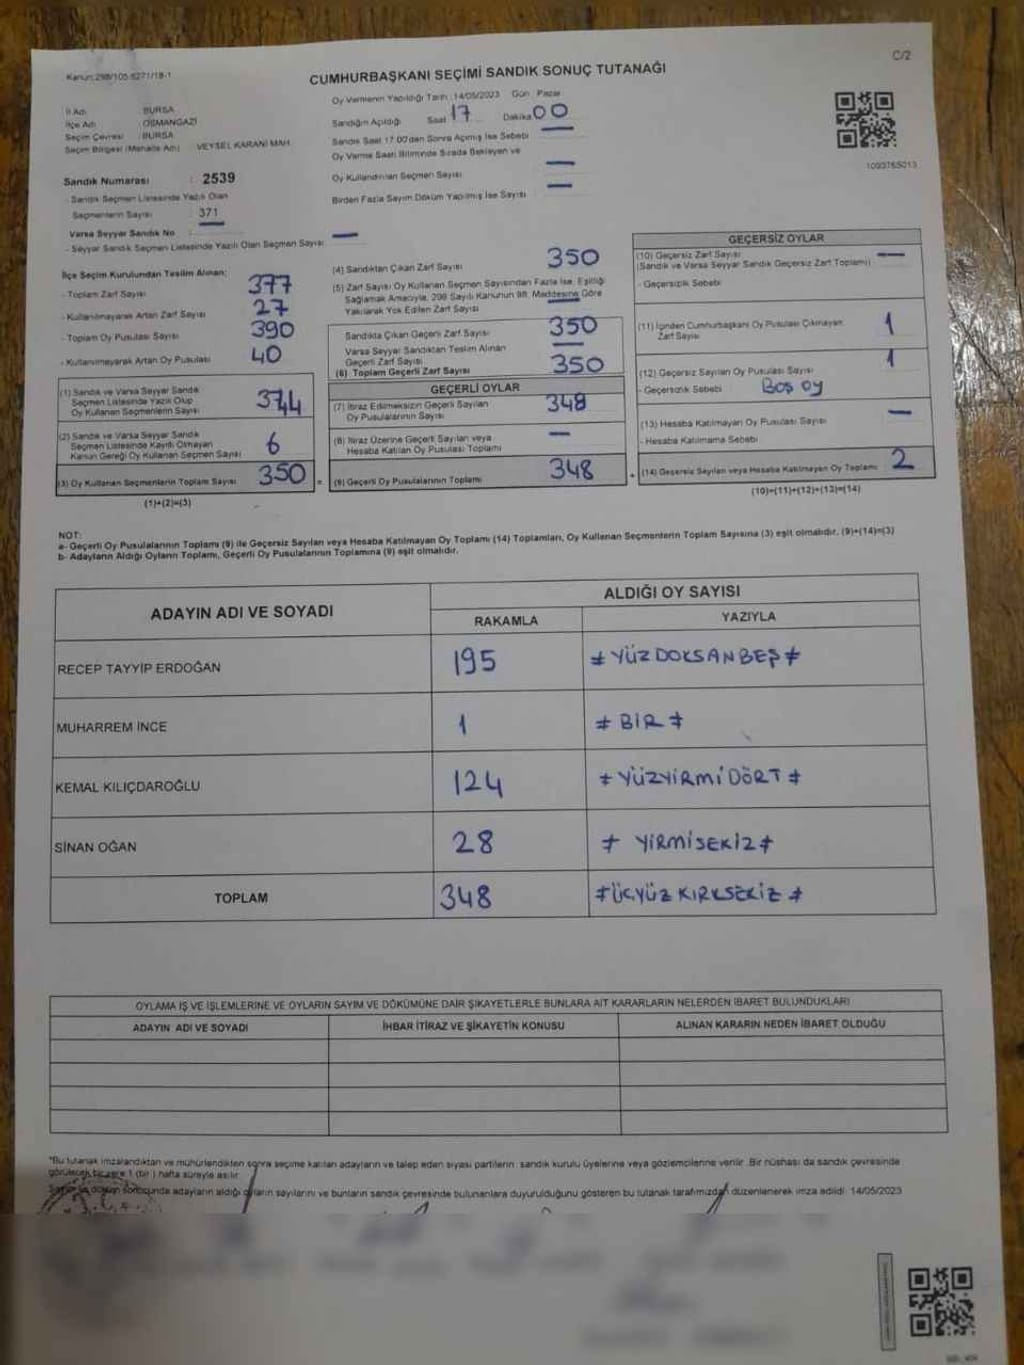 C/2
Kanun:298/105-6271/18-1
CUMHURBAŞKANI SEÇİMİ SANDIK SONUÇ TUTANAĞI
İl Adı : BURSA
İlçe Adı : OSMANGAZİ
Seçim Çevresi : BURSA
Seçim Bölgesi (Mahalle Adı) VEYSEL KARANİ MAH.
Sandık Numarası : 2539
- Sandık Seçmen Listesinde Yazılı Olan
Seçmenlerin Sayısı : 371
Varsa Seyyar Sandık No :
- Seyyar Sandık Seçmen Listesinde Yazılı Olan Seçmen Sayısı: —
Oy Vermenin Yapıldığı Tarih: 14/05/2023 Gün: Pazar
Sandığın Açıldığı Saat 17 Dakika 00
Sandık Saat 17:00'den Sonra Açılmış İse Sebebi —
Oy Verme Saati Bitiminde Sırada Bekleyen ve
Oy Kullandırılan Seçmen Sayısı —
Birden Fazla Sayım Döküm Yapılmış İse Sayısı —
1093765013
İlçe Seçim Kurulundan Teslim Alınan:
- Toplam Zarf Sayısı 377
- Kullanılmayarak Artan Zarf Sayısı 27
- Toplam Oy Pusulası Sayısı 390
- Kullanılmayarak Artan Oy Pusulası 40
(1) Sandık ve Varsa Seyyar Sandık
Seçmen Listesinde Yazılı Olup
Oy Kullanan Seçmenlerin Sayısı 344
(2) Sandık ve Varsa Seyyar Sandık
Seçmen Listesinde Kayıtlı Olmayan
Kanun Gereği Oy Kullanan Seçmen Sayısı 6
(3) Oy Kullanan Seçmenlerin Toplam Sayısı 350 =
(1)+(2)=(3)
(4) Sandıktan Çıkan Zarf Sayısı 350
(5) Zarf Sayısı Oy Kullanan Seçmen Sayısından Fazla İse, Eşitliği
Sağlamak Amacıyla, 298 Sayılı Kanunun 98. Maddesine Göre
Yakılarak Yok Edilen Zarf Sayısı —
Sandıkta Çıkan Geçerli Zarf Sayısı 350
Varsa Seyyar Sandıktan Teslim Alınan
Geçerli Zarf Sayısı —
(6) Toplam Geçerli Zarf Sayısı 350
GEÇERLİ OYLAR
(7) İtiraz Edilmeksizin Geçerli Sayılan
Oy Pusulalarının Sayısı 348
(8) İtiraz Üzerine Geçerli Sayılan veya
Hesaba Katılan Oy Pusulası Toplamı —
(9) Geçerli Oy Pusulalarının Toplamı 348 +
GEÇERSİZ OYLAR
(10) Geçersiz Zarf Sayısı —
(Sandık ve Varsa Seyyar Sandık Geçersiz Zarf Toplamı)
- Geçersizlik Sebebi
(11) İçinden Cumhurbaşkanı Oy Pusulası Çıkmayan
Zarf Sayısı 1
(12) Geçersiz Sayılan Oy Pusulası Sayısı 1
- Geçersizlik Sebebi Boş oy
(13) Hesaba Katılmayan Oy Pusulası Sayısı —
- Hesaba Katılmama Sebebi
(14) Geçersiz Sayılan veya Hesaba Katılmayan Oy Toplamı 2
(10)+(11)+(12)+(13)=(14)
NOT:
a- Geçerli Oy Pusulalarının Toplamı (9) ile Geçersiz Sayılan veya Hesaba Katılmayan Oy Toplamı (14) Toplamları, Oy Kullanan Seçmenlerin Toplam Sayısına (3) eşit olmalıdır. (9)+(14)=(3)
b- Adayların Aldığı Oyların Toplamı, Geçerli Oy Pusulalarının Toplamına (9) eşit olmalıdır.
ADAYIN ADI VE SOYADI
ALDIĞI OY SAYISI
RAKAMLA YAZIYLA
RECEP TAYYİP ERDOĞAN 195 # YÜZDOKSANBEŞ #
MUHARREM İNCE 1 # BİR #
KEMAL KILIÇDAROĞLU 124 # YÜZYİRMİDÖRT #
SİNAN OĞAN 28 # YİRMİSEKİZ #
TOPLAM 348 # ÜÇYÜZKIRKSEKİZ #
OYLAMA İŞ VE İŞLEMLERİNE VE OYLARIN SAYIM VE DÖKÜMÜNE DAİR ŞİKAYETLERLE BUNLARA AİT KARARLARIN NELERDEN İBARET BULUNDUKLARI
ADAYIN ADI VE SOYADI İHBAR İTİRAZ VE ŞİKAYETİN KONUSU ALINAN KARARIN NEDEN İBARET OLDUĞU
*Bu tutanak imzalandıktan ve mühürlendikten sonra seçime katılan adayların ve talep eden siyasi partilerin sandık kurulu üyelerine veya gözlemcilerine verilir. Bir nüshası da sandık çevresinde
görülecek bir yere 1 (bir ) hafta süreyle asılır.
döküm sonucunda adayların aldığı oyların sayılarını ve bunların sandık çevresinde bulunanlara duyurulduğunu gösteren bu tutanak tarafımızdan düzenlenerek imza edildi. 14/05/2023